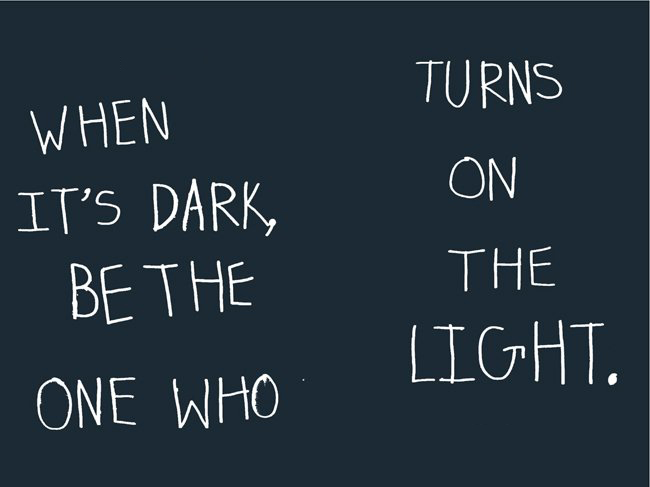 WHEN
IT'S DARK,
BE THE
ONE WHO
TURNS
ON
THE
LIGHT.